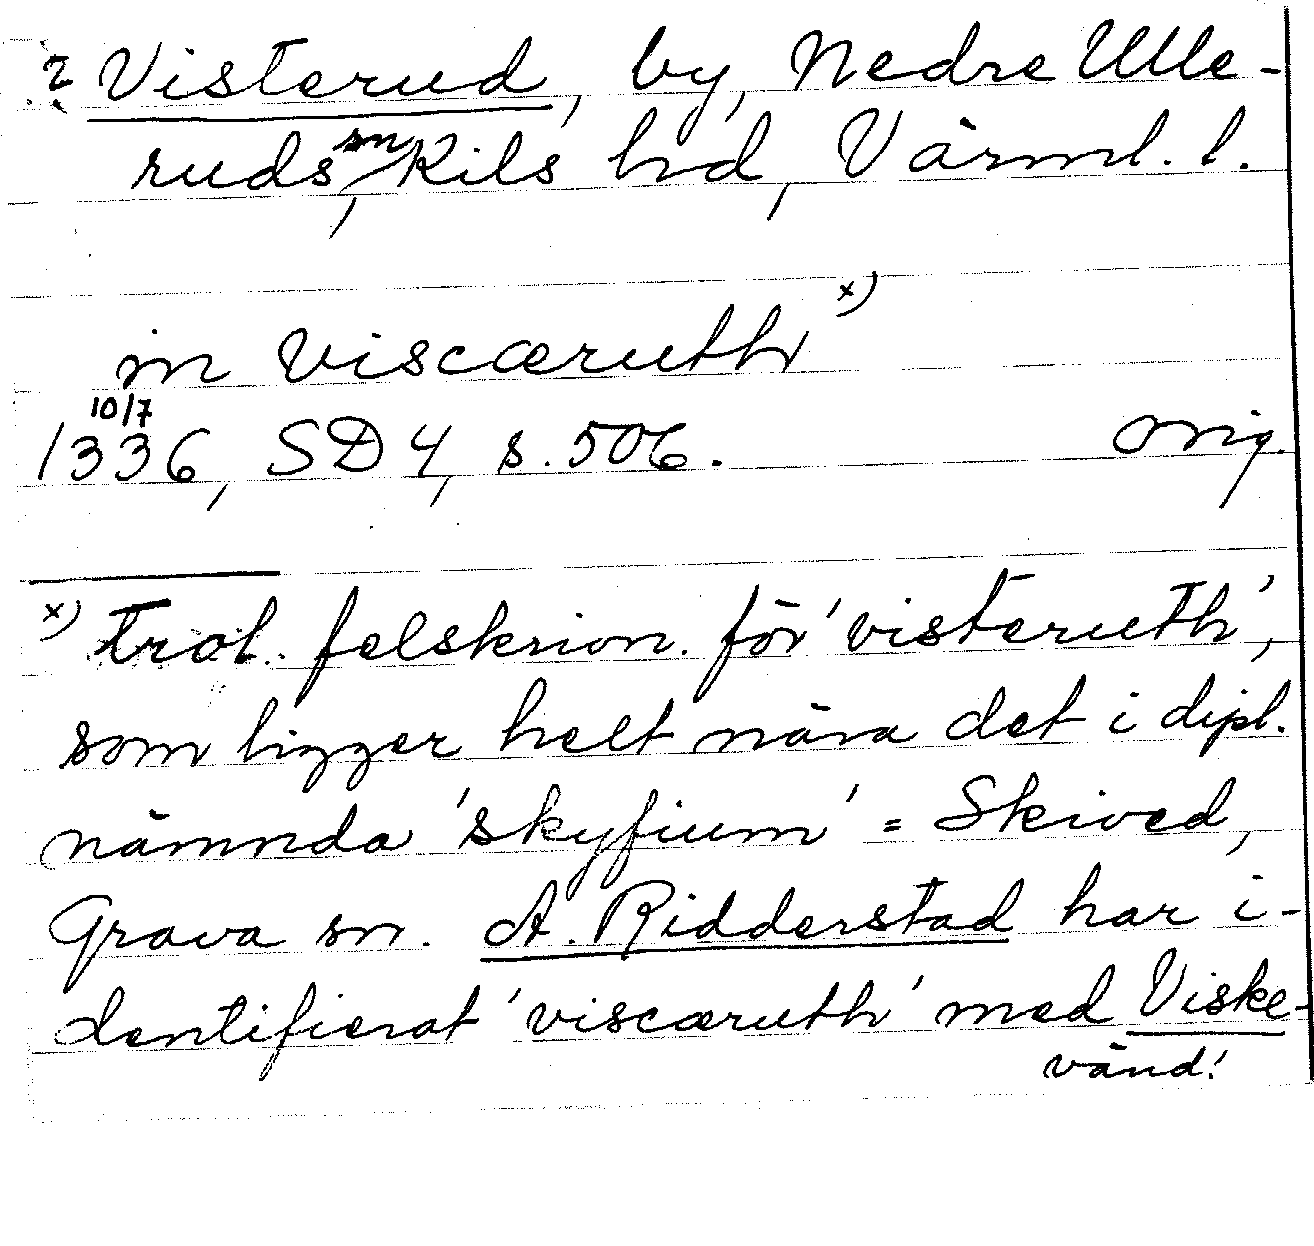 ? Visterud, by, Nedre Ulle-
ruds sn, Kils hd, Värml. l.
in viscæruth x)
10/7
1336, SD 4, s. 506. orig.
x) trol. felskrivn. för 'visteruth',
som ligger helt nära det i dipl.
nämnda 'skyfium' = Skived,
Grava sn. A. Ridderstad har i-
dentifierat 'viscæruth' med Viske-
vänd!